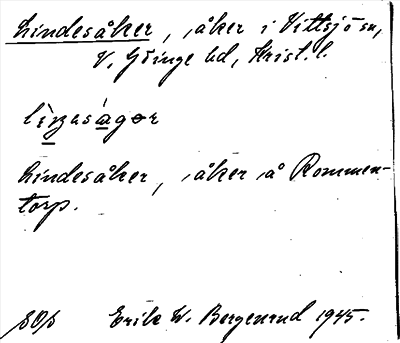 Lindesåker, åker i Vittsjö sn,
V. Göinge hd, Krist. l.
Lindesåker, åker å Rommen-
torp.
SOS Erik W. Bergenrud 1945.